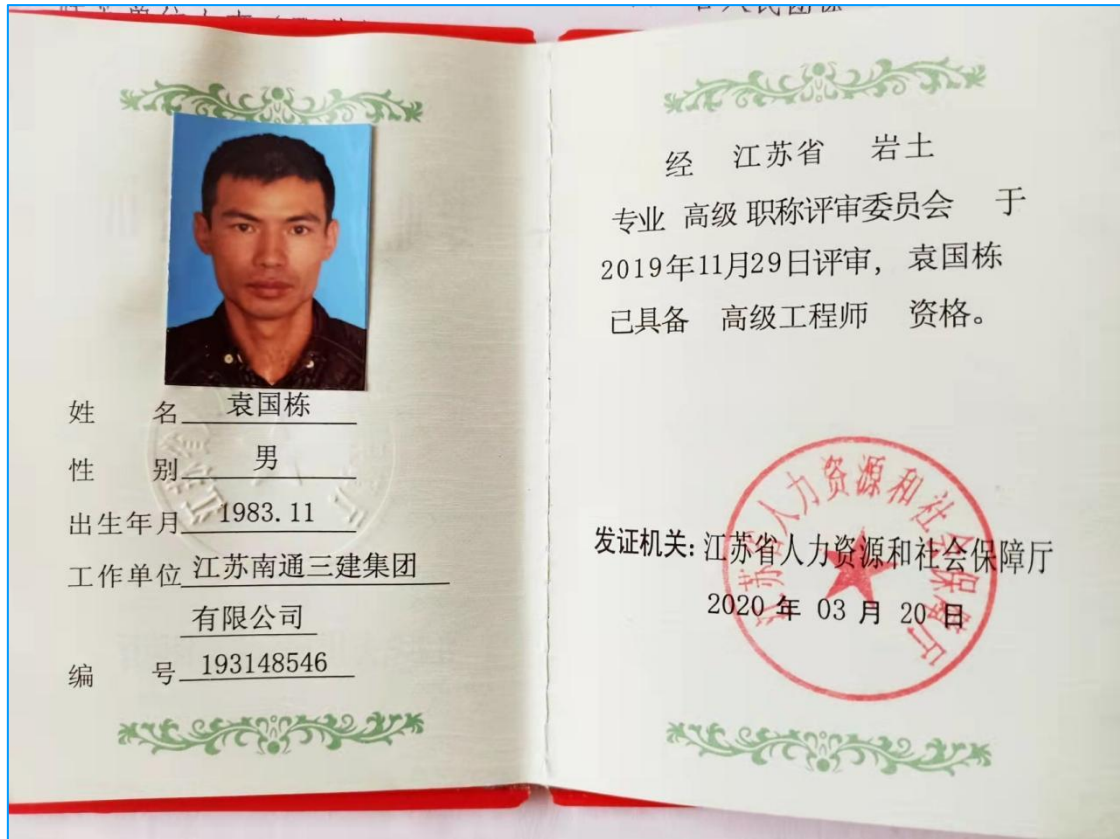 姓 名 袁国栋
性 别 男
出生年月 1983.11
工作单位 江苏南通三建集团
有限公司
编 号 193148546
经 江苏省 岩土
专业 高级 职称评审委员会 于
2019年11月29日评审，袁国栋
已具备 高级工程师 资格。
江苏省人力资源和社会保障厅
发证机关：江苏省人力资源和社会保障厅
2020 年 03 月 20 日